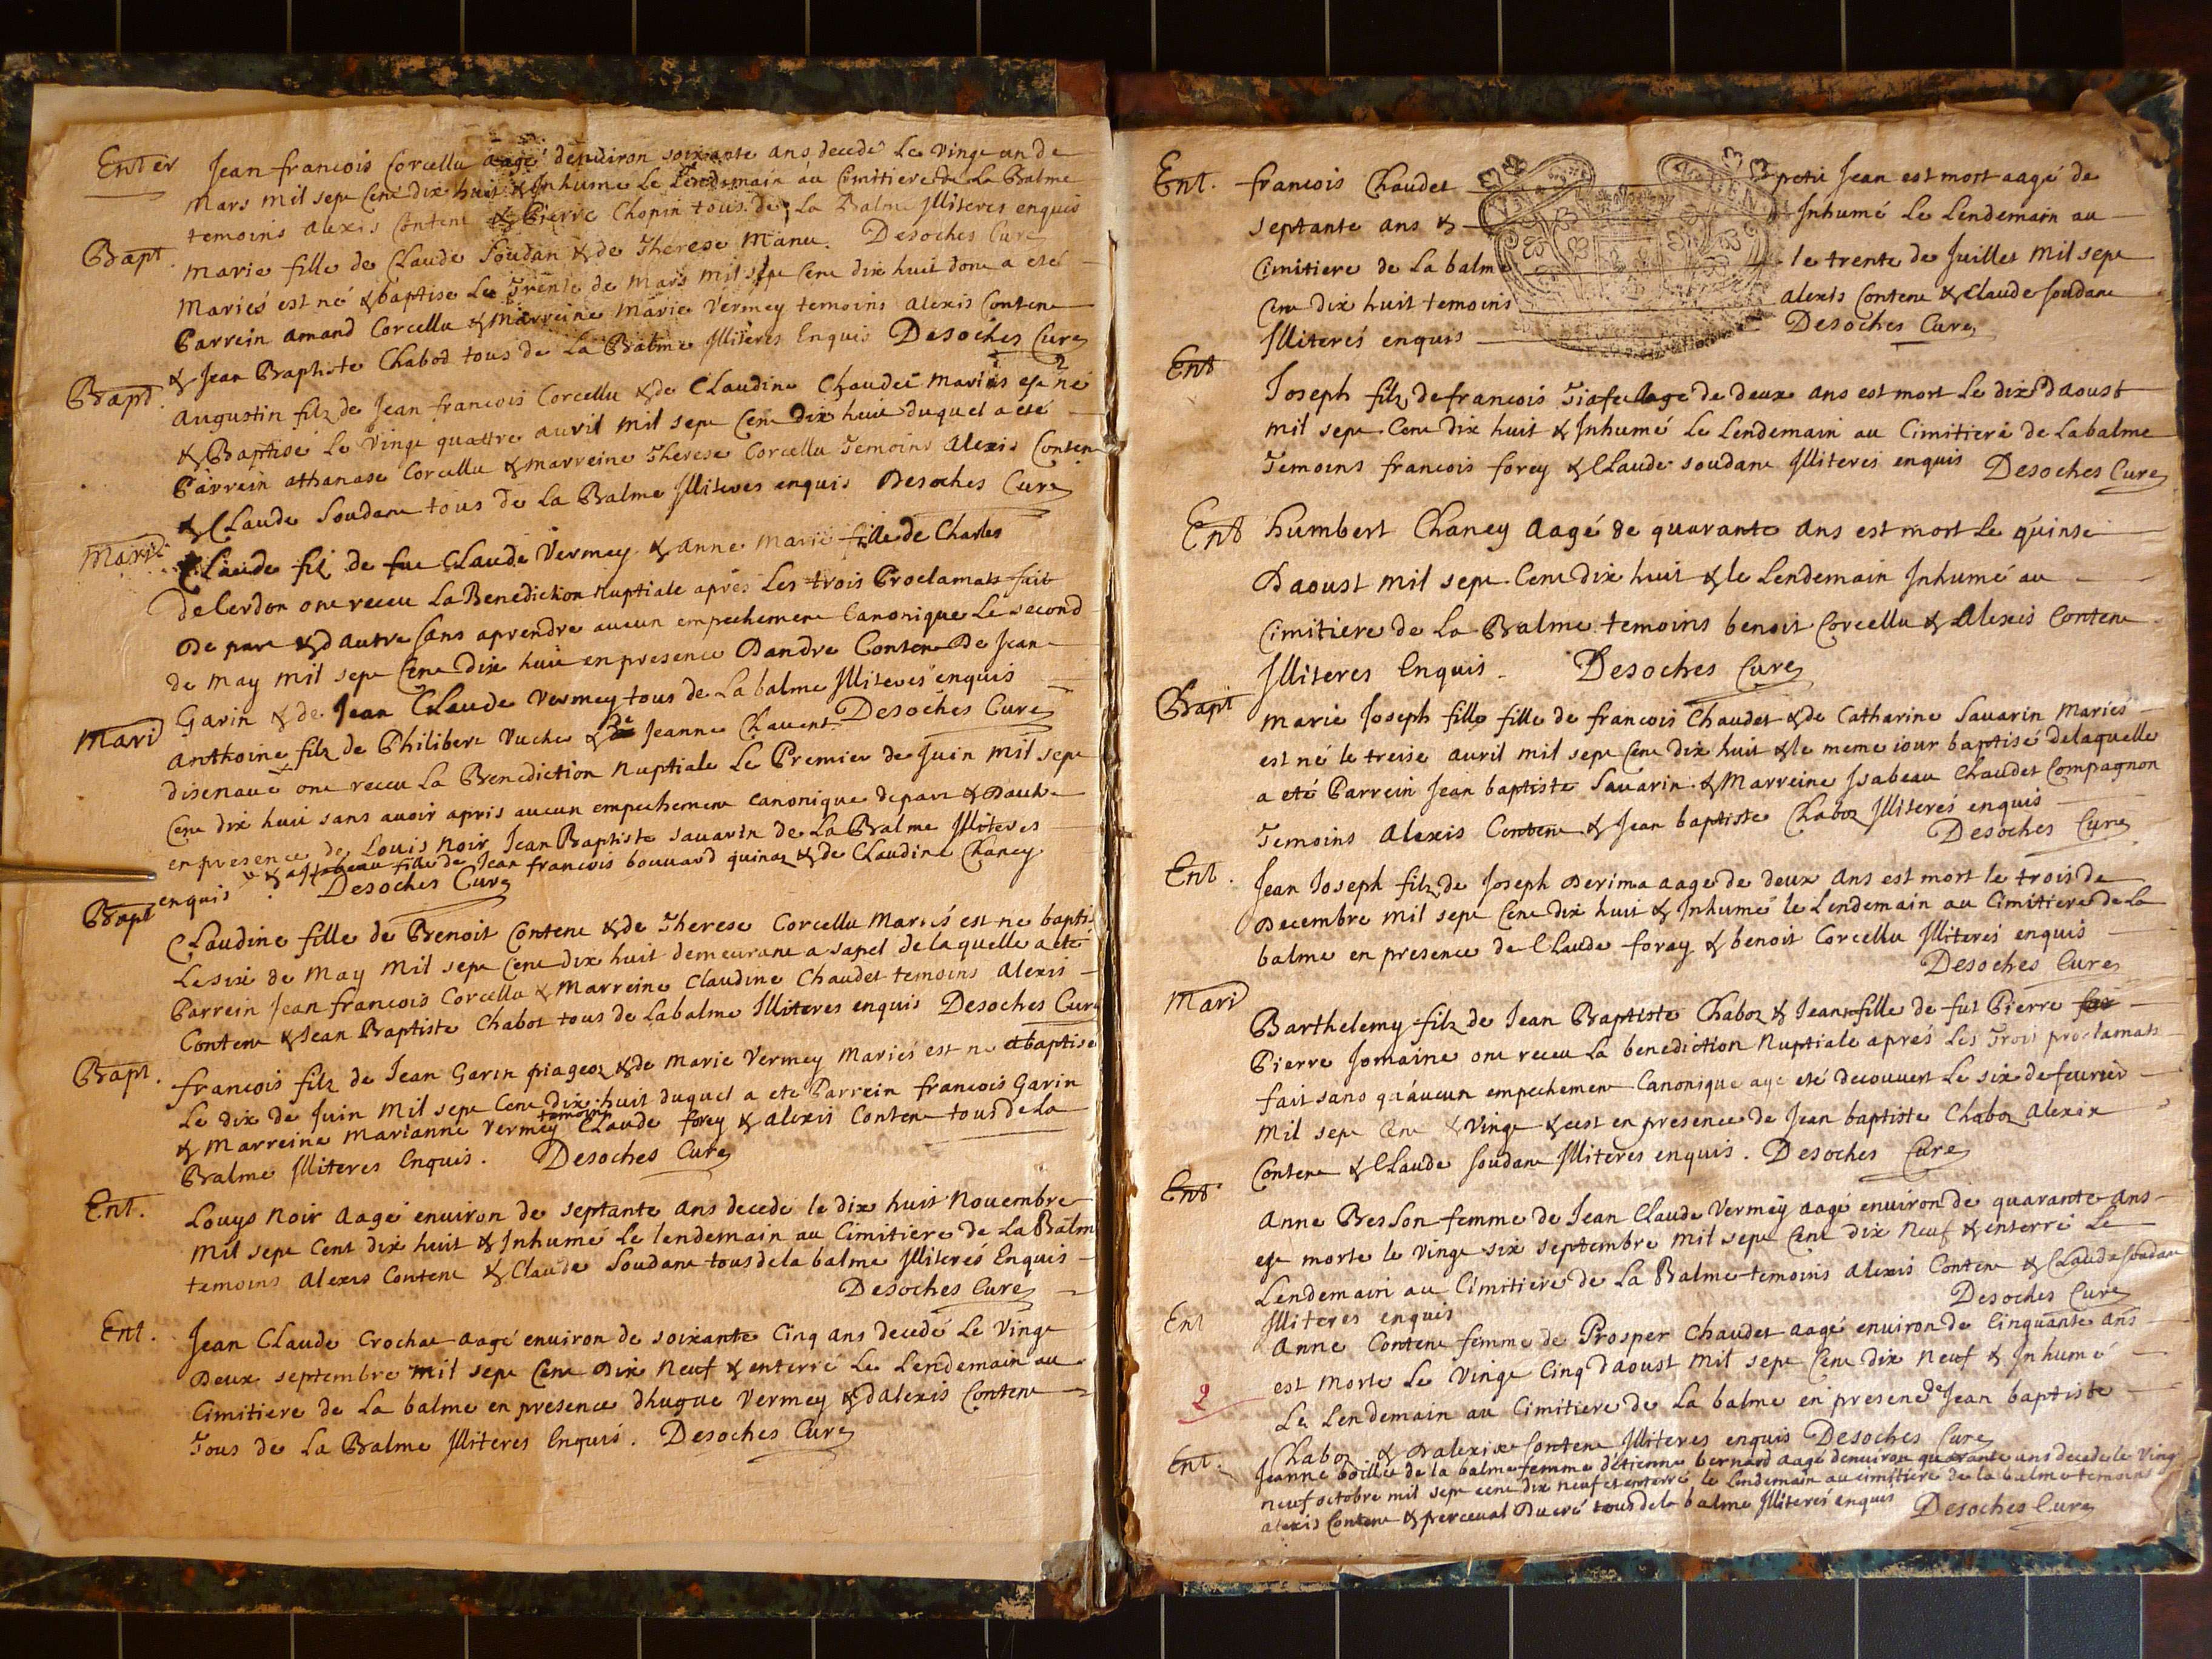 Enter Jean francois Corcellu aagé denuiron soixante ans decedé Le vingt un de
mars mil sept Cent dix huit & Inhumé Le Lendemain au Cimitiere de La Balme
temoins alexis Content & Pierre Chopin tous de La Balme Illiteres enquis
Desoches Curé
Bapt. marie fille de Claude Soudan & de Therese Manu
mariés est né & baptise Le Trente de mars mil sept Cent dix huit dont a eté
Parrein amand Corcellu & Marreine Marie Vermey temoins alexis Contene
& Jean Baptiste Chabod tous de La Balme Illiteres Enquis Desoches Curé
Bapt. augustin filz de Jean francois Corcellu & de Claudine Chaudet mariés est né
& Baptisé Le vingt quattre auvril mil sept Cent dix huit duquel a eté
Parrein athanase Corcellu & marreine Therese Corcellu Temoins Alexis Conten
& Claude Soudane tous de La Balme Illiteres enquis Desoches Curé
Mari Claude fil de fut Claude Vermey & anne marie fille de Charles
de Cerdon ont receu La Benediction nuptiale aprés Les trois Proclamats fait
De part & d autre Sans aprendre aucun empechement Canonique Le second
de may mil sept Cent dix huit en presence Dandre Contene De Jean
Garin & de Jean Claude Vermey tous de La balme Illiterés enquis
Desoches Curé
Mari Anthoine filz de Philibert Vuche & de Jeanne Chavent
disenave ont receu La Benediction nuptiale Le Premier de Juin mil sept
Cent dix huit sans auoir apris aucun empechement canonique de part & Dautre
en presence de Louis noir Jean Baptiste sauarin de La Balme Illiteres
& fille de Jean francois bouuard quinaz & de Claudine Chaney
enquis Desoches Curé
Bapt Claudine fille de Benoit Contene & de Therese Corcellu Mariés est ne bapti
Le sixe de May mil sept Cent dix huit demeurant a sapel de laquelle a eté
Parrein Jean francois Corcellu & Marreine Claudine Chaudet temoins alexis
Contene & Jean Baptiste Chabot tous de La balme Illiteres enquis Desoches Curé
Bapt. francois filz de Jean Garin piageoz & de Marie Vermey Mariés est né & baptise
Le dix de Juin mil sept Cent dix huit duquel a eté Parrein francois Garin
& Marreine Marianne Vermey temoins Claude forey & alexis Contene tous de La
Balme Illiteres Enquis. Desoches Curé
Ent. Louys Noir aagé enuiron de septante ans decedé le dix huit Nouembre
mil sept Cent dix huit & Inhumé Le lendemain au Cimitiere de La Balm
temoins alexis Contene & Claude Soudane tous de la balme Illiterés Enquis
Desoches Curé
Ent. Jean Claude Crochat aagé enuiron de soixante Cinq ans decedé Le Vingt
Deux septembre mil sept Cent Dix Neuf & enterré Le Lendemain au
Cimitiere de La balme en presence dhugue Vermey & dalexis Contene
Tous de La Balme Illiteres Enquis. Desoches Curé
Ent. francois Chaudet petit Jean est mort aagé de
septante ans & Inhumé Le Lendemain au
Cimitiere de La balme le trente de Juillet mil sept
Cent dix huit temoins alexis Contene & Claude Soudane
Illiterés enquis Desoches Curé
Ent Joseph filz de francois aagé de deux ans est mort Le dix Daoust
mil sept Cent dix huit & Inhumé Le Lendemain au Cimitieré de Labalme
Temoins francois forey & Claude soudane Illiteres enquis Desoches Curé
Ent humbert Chaney aagé de quarante ans est mort Le quinse
Daoust mil sept Cent dix huit & le Lendemain Inhumé au
Cimitiere de La Balme temoins benoit Corcellu & Alexis Contene
Illiteres Enquis Desoches Curé
Bapt marie Joseph fille fille de francois Chaudet & de Catharine Sauarin Mariés
est né le treise auril mil sept Cent dix huit & le meme iour baptisé delaquelle
a eté Parrein Jean baptiste Sauarin & Marreine Isabeau Chaudet Compagnon
Temoins Alexis Contene & Jean baptiste Chaboz Illiterés enquis
Desoches Curé
Ent. Jean Joseph filz de Joseph Derima aage de deux ans est mort le trois de
Decembre mil sept Cent dix huit & Inhumé le Lendemain au Cimitiere de La
balme en presence de Claude foray & benoit Corcellu Illiterés enquis
Desoches Curé
Mari Barthelemy filz de Jean Baptiste Chaboz & Jeanne fille de fut Pierre
Pierre Jomaine ont receu La benediction Nuptiale aprés Les Trois proclamats
fait sans qu'aucun empechement Canonique aye eté decouuert Le six de feurier
mil sept Cent & Vingt & cest en presence de Jean baptiste Chaboz Alexix
Contene & Claude Soudane Illiteres enquis. Desoches Curé
Ent Anne Besson femme de Jean Claude Vermey aagé enuiron de quarante ans
est morte le vingt six septembre mil sept Cent dix Neuf & enterré Le
Lendemain au Cimitiere de La Balme temoins alexis Contene & Claude Soudane
Illiteres enquis Desoches Curé
Ent Anne Contene femme de Prosper Chaudet aagé enuiron de Cinquante ans
est morte Le vingt Cinq daoust mil sept Cent dix neuf & Inhumé
2 Le Lendemain au Cimitiere de La balme en presence de Jean baptiste
Chaboz & Dalexix Contene Illiteres enquis Desoches Curé
Ent. Jeanne boillie de la balme femme détienne bernard aagé denuiron quarante ans decede le Vingt
neuf octobre mil sept cent dix neuf et enterré le Lendemain au cimitiere de la balme temoins
alexis Contene & perceual Ducré tous de la balme Illiterés enquis Desoches Curé